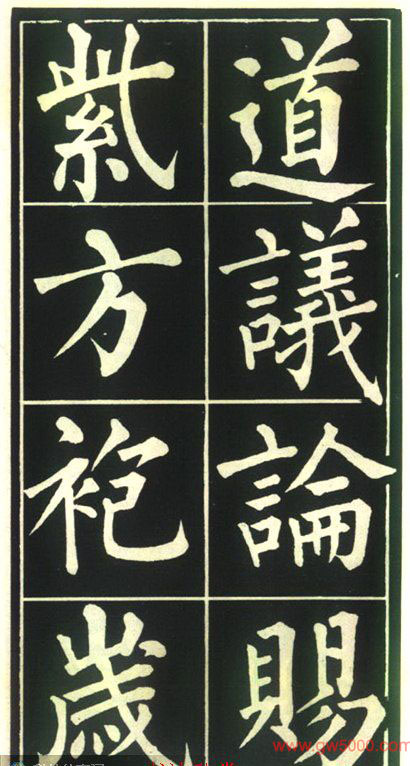 道議論賜
紫方袍歲
www.gw5000.com